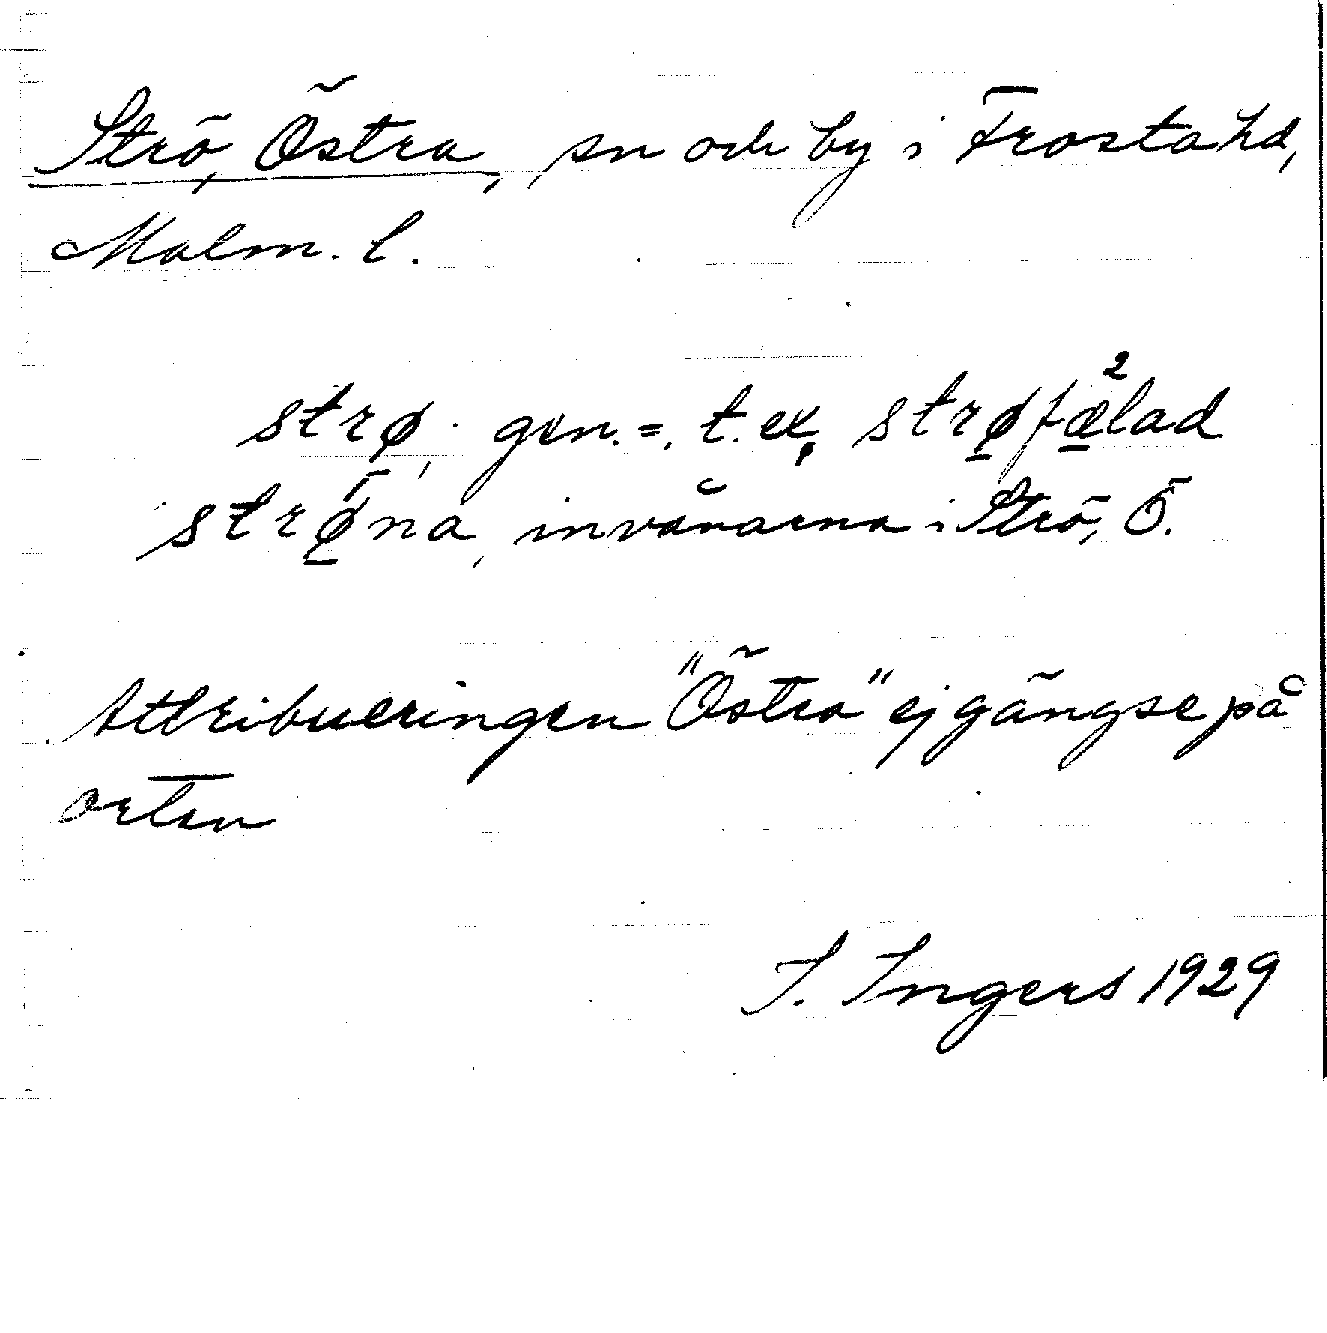 Strö, Östra, sn och by i Frosta hd,
Malm. l.
strø, gen. =, t. ex. strø̠fæ̠²lad
strǿ̠na, invånarna i Strö, Ö.
Attribueringen "Östra" ej gängse på
orten
I. Ingers 1929